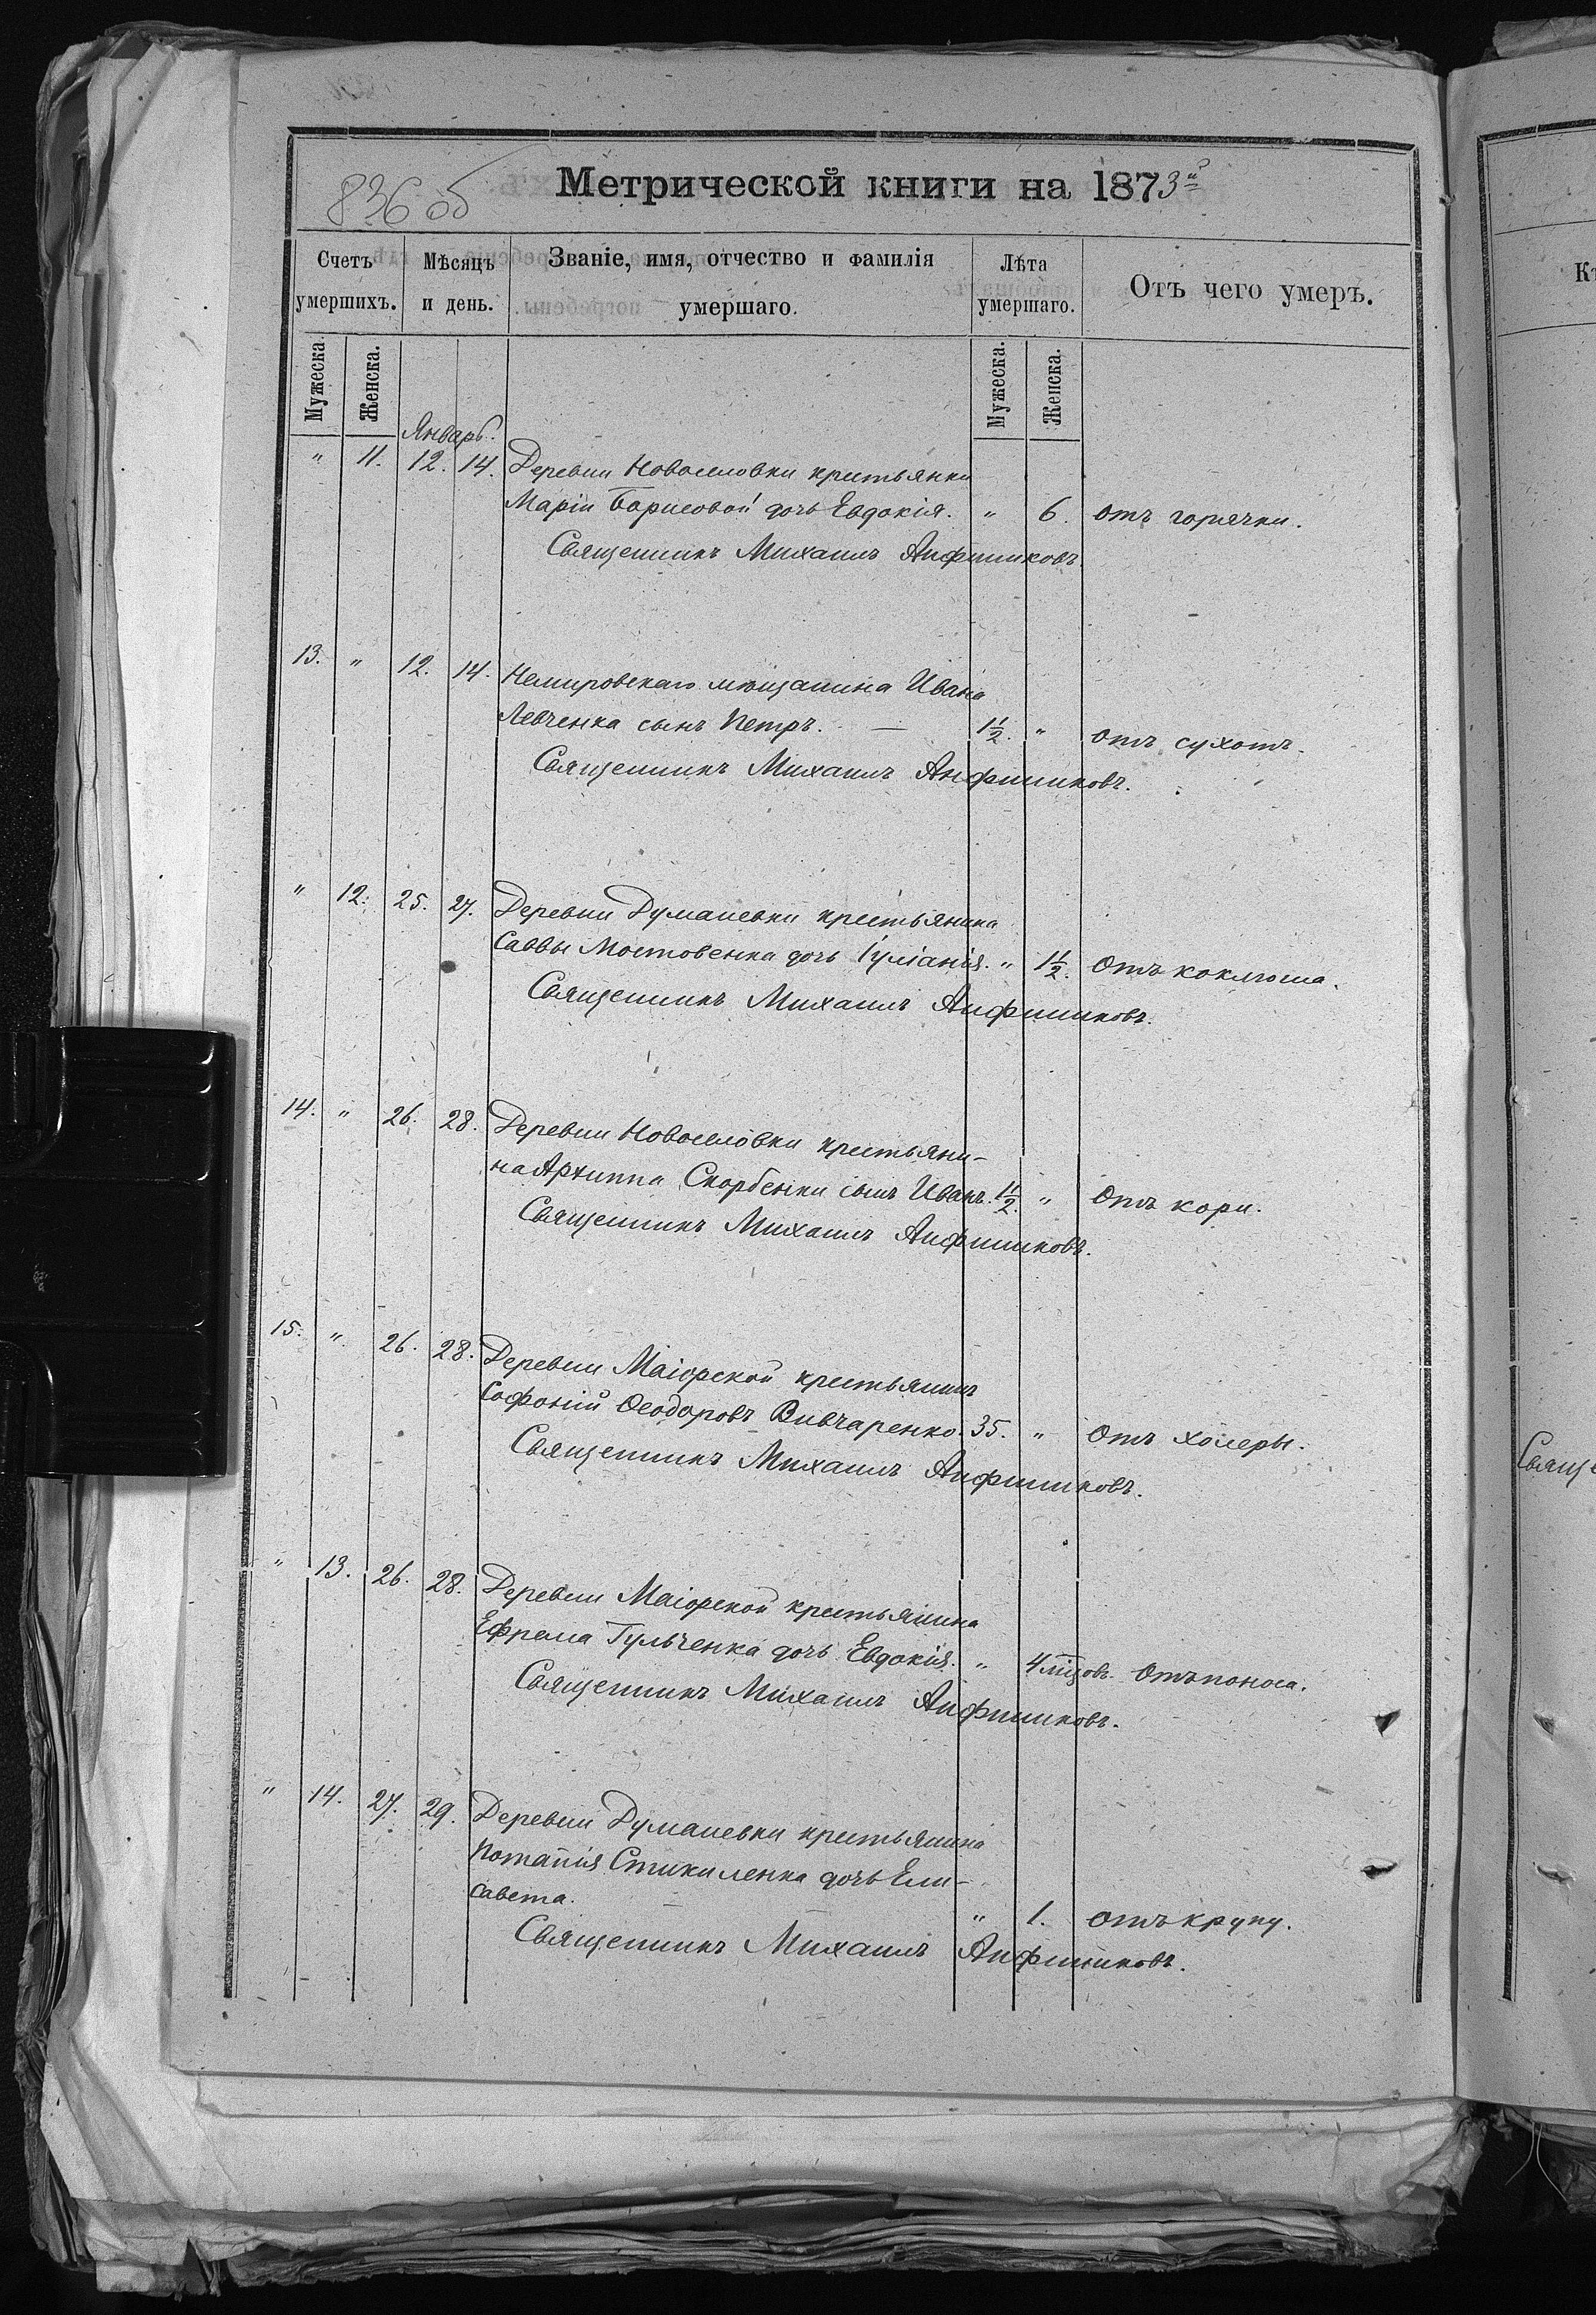 836 об
Метрической книги на 1873й
Счетъ умершихъ. Мѣсяцъ и день. Званіе, имя, отчество и фамилія умершаго. Лѣта умершаго. Отъ чего умеръ.
Мужеска. Женска. Мужеска. Женска.
Январь.
" 11. 12. 14. Деревни Новоселовки крестьянки
Маріи Борисовой дочь Евдокія. " 6. отъ горячки.
Священникъ Михаилъ Анфиниковъ.
13. " 12. 14. Немировскаго мѣщанина Ивана
Левченка сынъ Петръ. — 1 1/2. " отъ сухотъ.
Священникъ Михаилъ Анфиниковъ.
" 12. 25. 27. Деревни Думаневки крестьянина
Саввы Мостовенка дочь Іуліанія. " 1 1/2. Отъ коклюша.
Священникъ Михаилъ Анфиниковъ.
14. " 26. 28. Деревни Новоселовки крестьяни-
на Архиппа Скорбенки сынъ Иванъ. 1 1/2. " Отъ кори.
Священникъ Михаилъ Анфиниковъ.
15. " 26. 28. Деревни Маіорской крестьянинъ
Софоній Ѳеодоровъ Вивчаренко. 35. " Отъ холеры.
Священникъ Михаилъ Анфиниковъ.
" 13. 26. 28. Деревни Маіорской крестьянина
Ефрема Гульченка дочь Евдокія. " 4 мцовъ. Отъ поноса.
Священникъ Михаилъ Анфиниковъ.
" 14. 27. 29. Деревни Думаневки крестьянина
Потапія Стикиленка дочь Ели-
савета. " 1. отъ крупу.
Священникъ Михаилъ Анфиниковъ.
Свяще